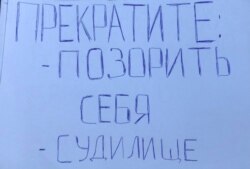 ПРЕКРАТИТЕ:
- ПОЗОРИТЬ
СЕБЯ
- СУДИЛИЩЕ